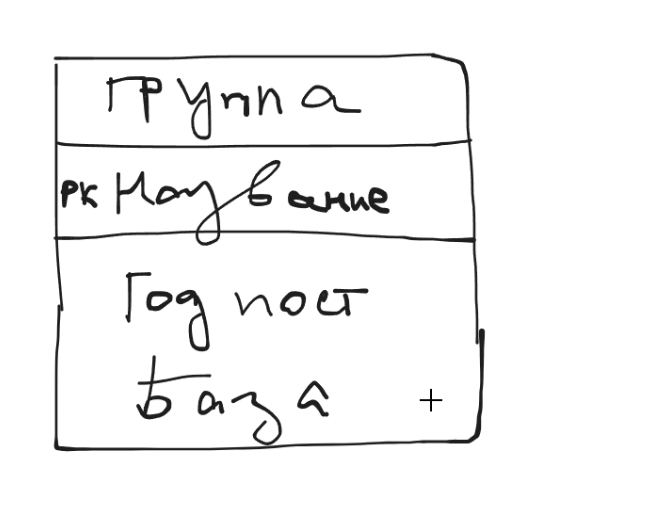 Группа
PK Название
Год пост
База